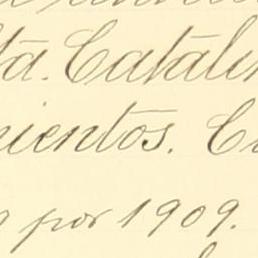 ta. Catalin
mientos. C
por 1909.